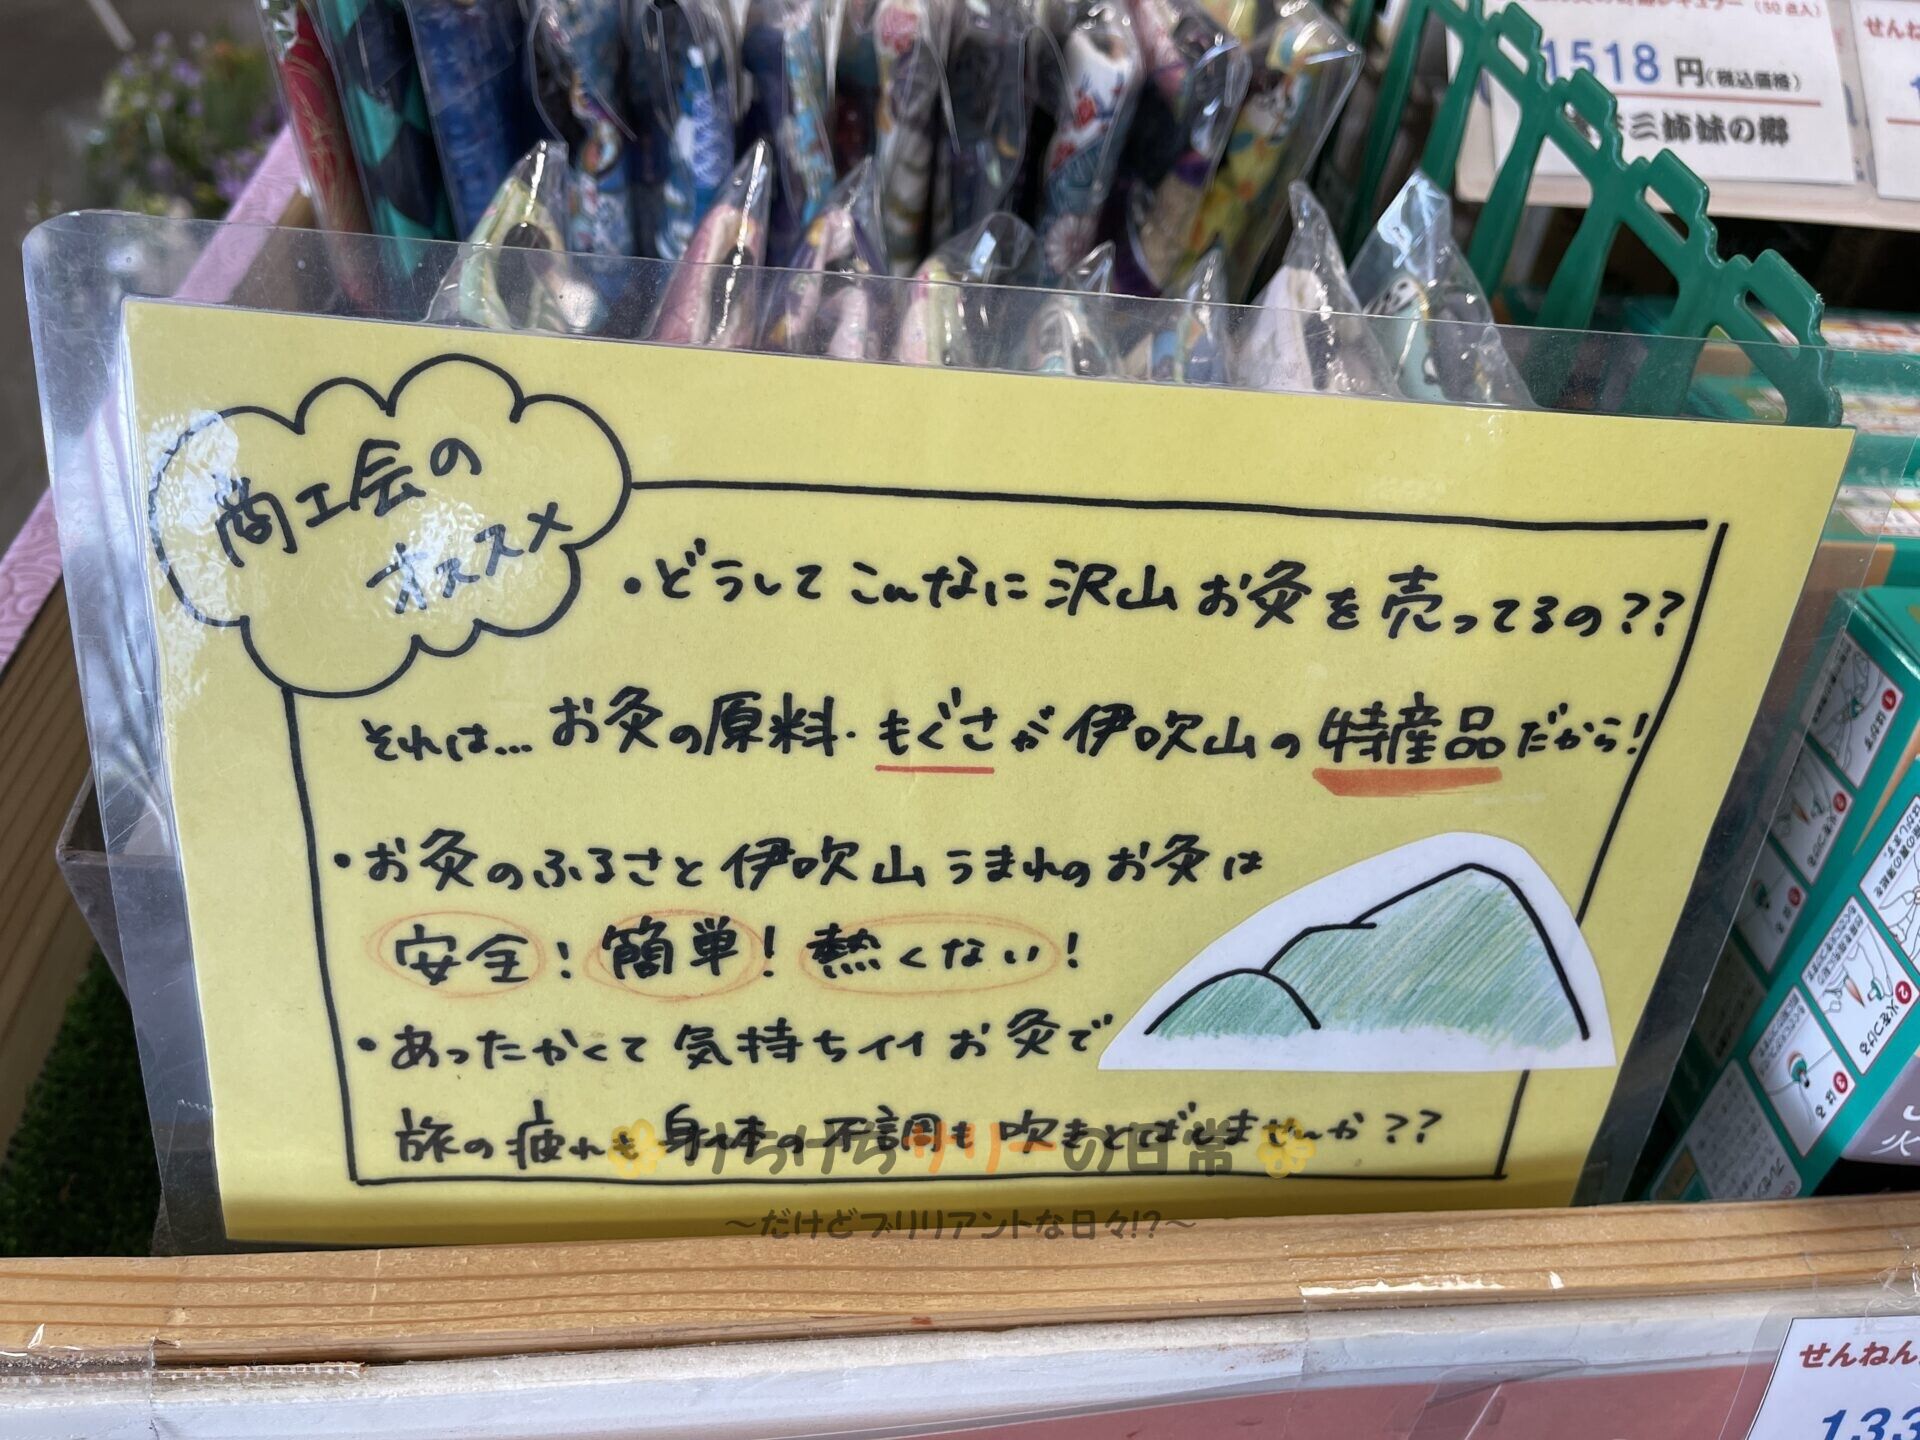 1518 円(税込価格)
三姉妹の郷
せんね
商工会の
オススメ
・どうしてこんなに沢山お灸を売ってるの??
それは...お灸の原料・もぐさが伊吹山の特産品だから!
・お灸のふるさと伊吹山うまれのお灸は
安全! 簡単! 熱くない!
・あったかくて気持ちイイお灸で
旅の疲れも身体の不調も吹きとばしませんか??
けちけちリリーの日常
〜だけどブリリアントな日々!?〜
① はがす
② 火をつける
③ はる
せんねん
133